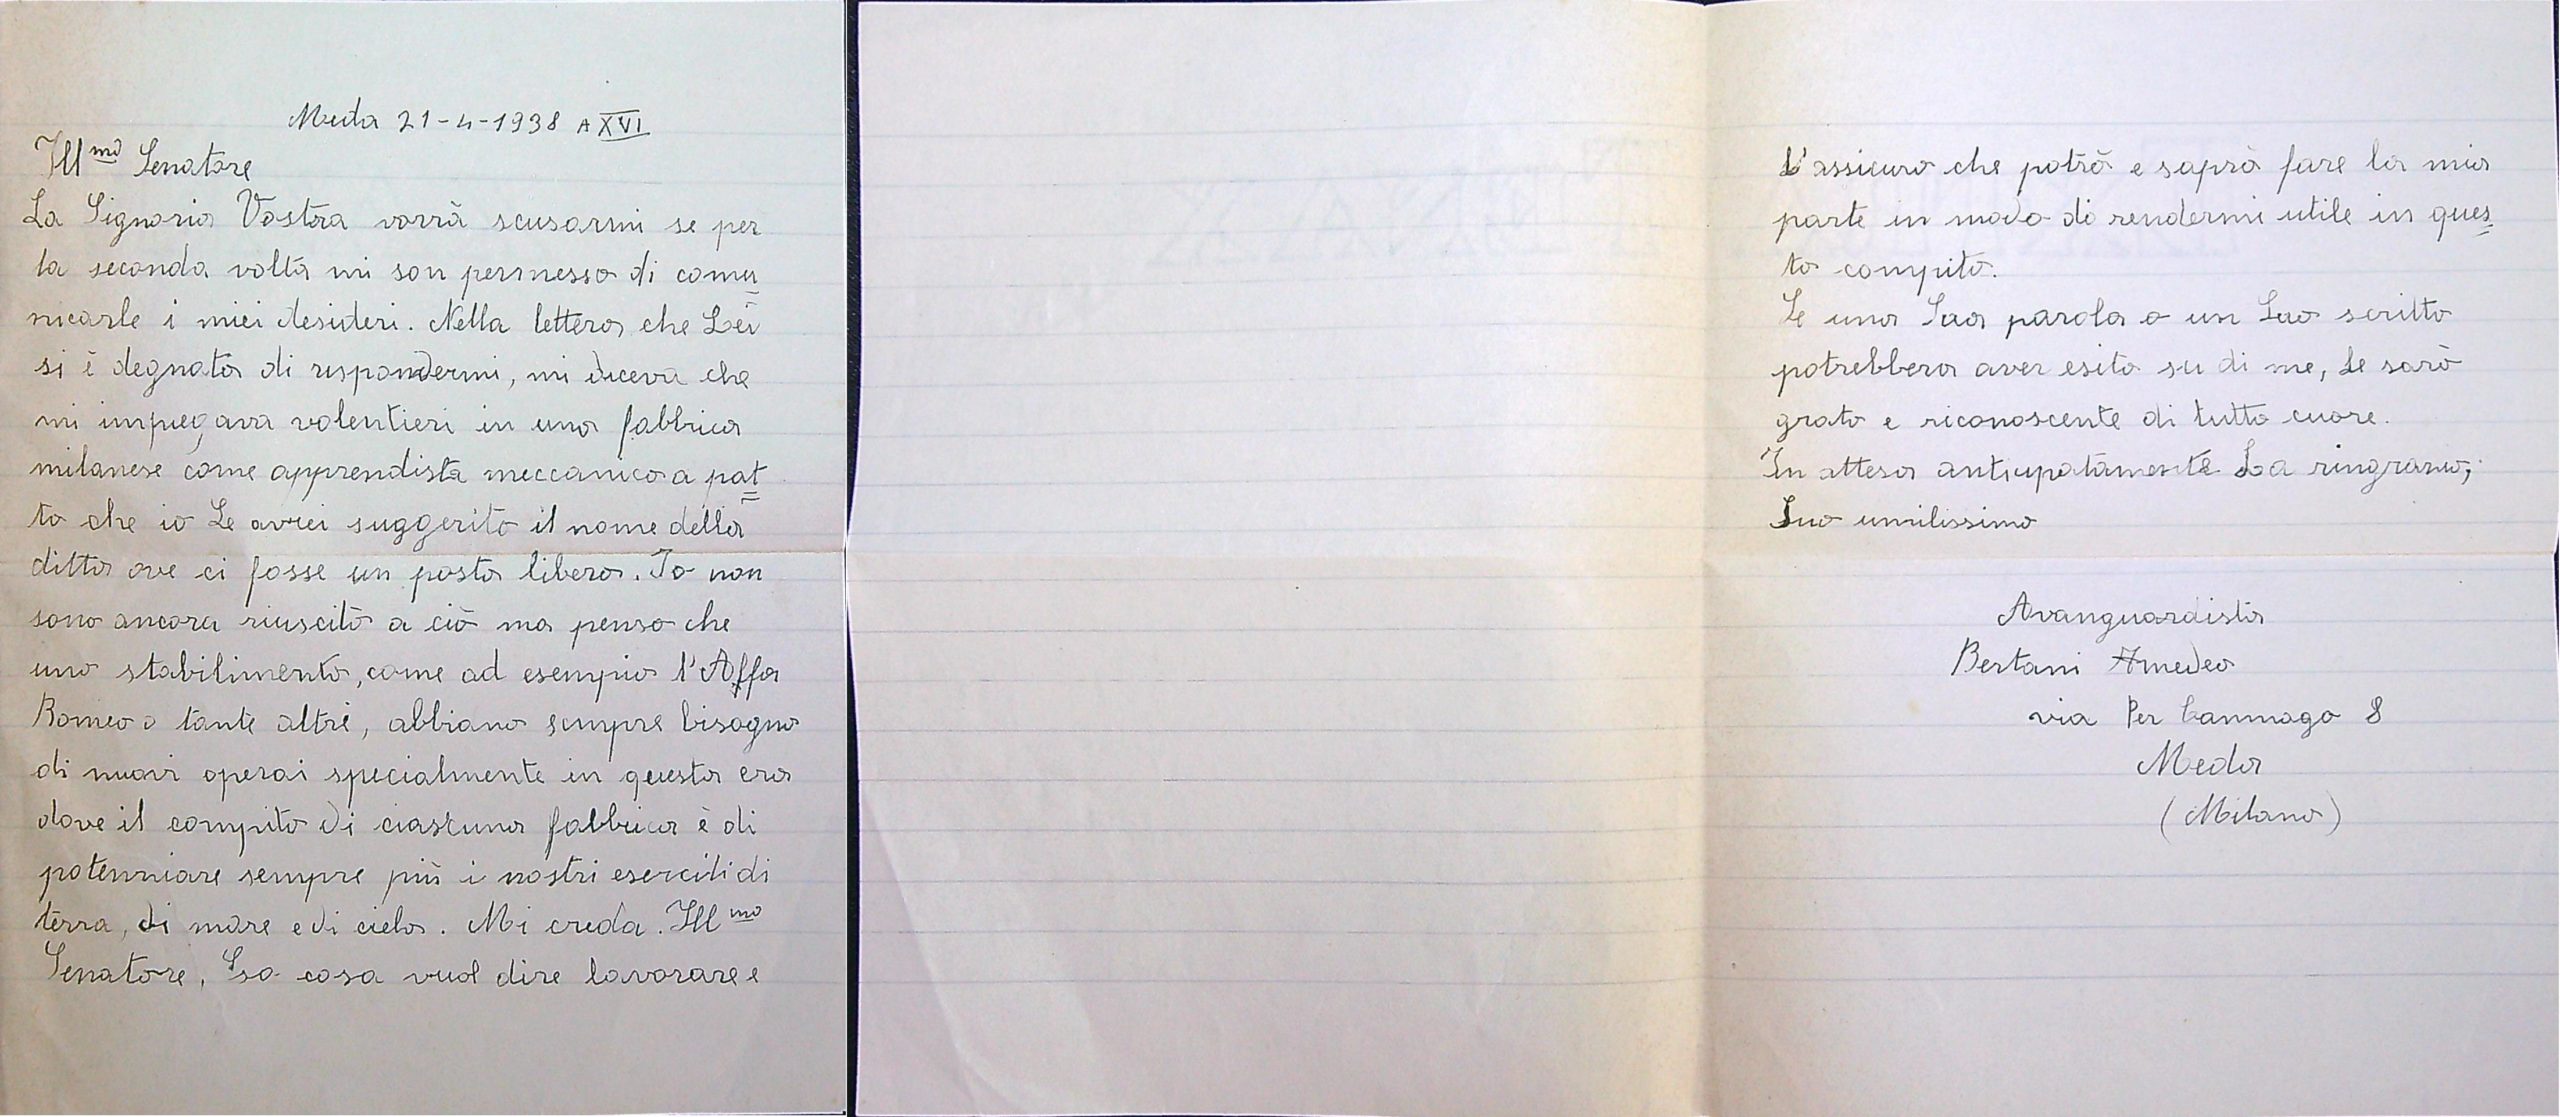 Meda 21-4-1938 A XVI
Ill mo Senatore
La Signoria Vostra vorrà scusarmi se per
la seconda volta mi son permesso di comu=
nicarle i miei desideri. Nella lettera che Lei
si è degnata di rispondermi, mi diceva che
mi impiegava volentieri in una fabbrica
milanese come apprendista meccanico a pat=
to che io Le avrei suggerito il nome della
ditta ove ci fosse un posto libero. Io non
sono ancora riuscito a ciò ma penso che
uno stabilimento, come ad esempio l'Alfa
Romeo o tante altre, abbiano sempre bisogno
di nuovi operai specialmente in questa era
dove il compito di ciascuna fabbrica è di
potenziare sempre più i nostri eserciti di
terra, di mare e di cielo. Mi creda. Ill mo
Senatore, So cosa vuol dire lavorare e
L'assicuro che potrò e saprò fare la mia
parte in modo di rendermi utile in ques=
to compito.
Se una Sua parola o un Suo scritto
potrebbero aver esito su di me, Le sarò
grato e riconoscente di tutto cuore.
In attesa anticipatamente La ringrazio;
Suo umilissimo
Avanguardista
Bertani Amedeo
via Per 8
Meda
(Milano)